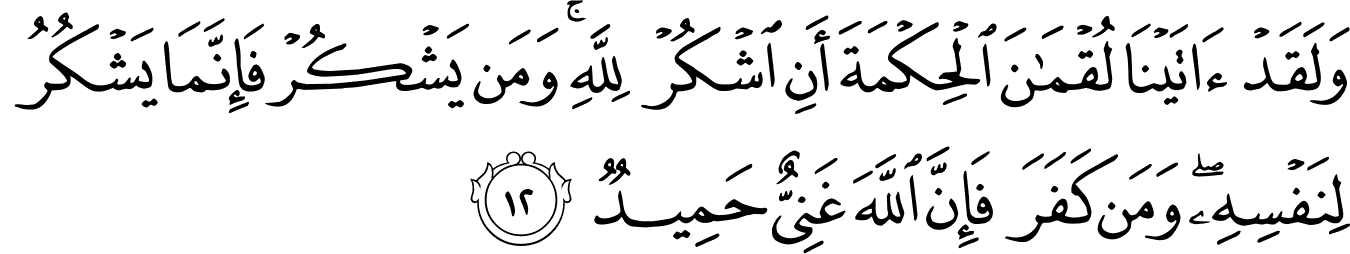 وَلَقَدۡ ءَاتَيۡنَا لُقۡمَٰنَ ٱلۡحِكۡمَةَ أَنِ ٱشۡكُرۡ لِلَّهِۚ وَمَن يَشۡكُرۡ فَإِنَّمَا يَشۡكُرُ
لِنَفۡسِهِۦۖ وَمَن كَفَرَ فَإِنَّ ٱللَّهَ غَنِيٌّ حَمِيدٞ ١٢